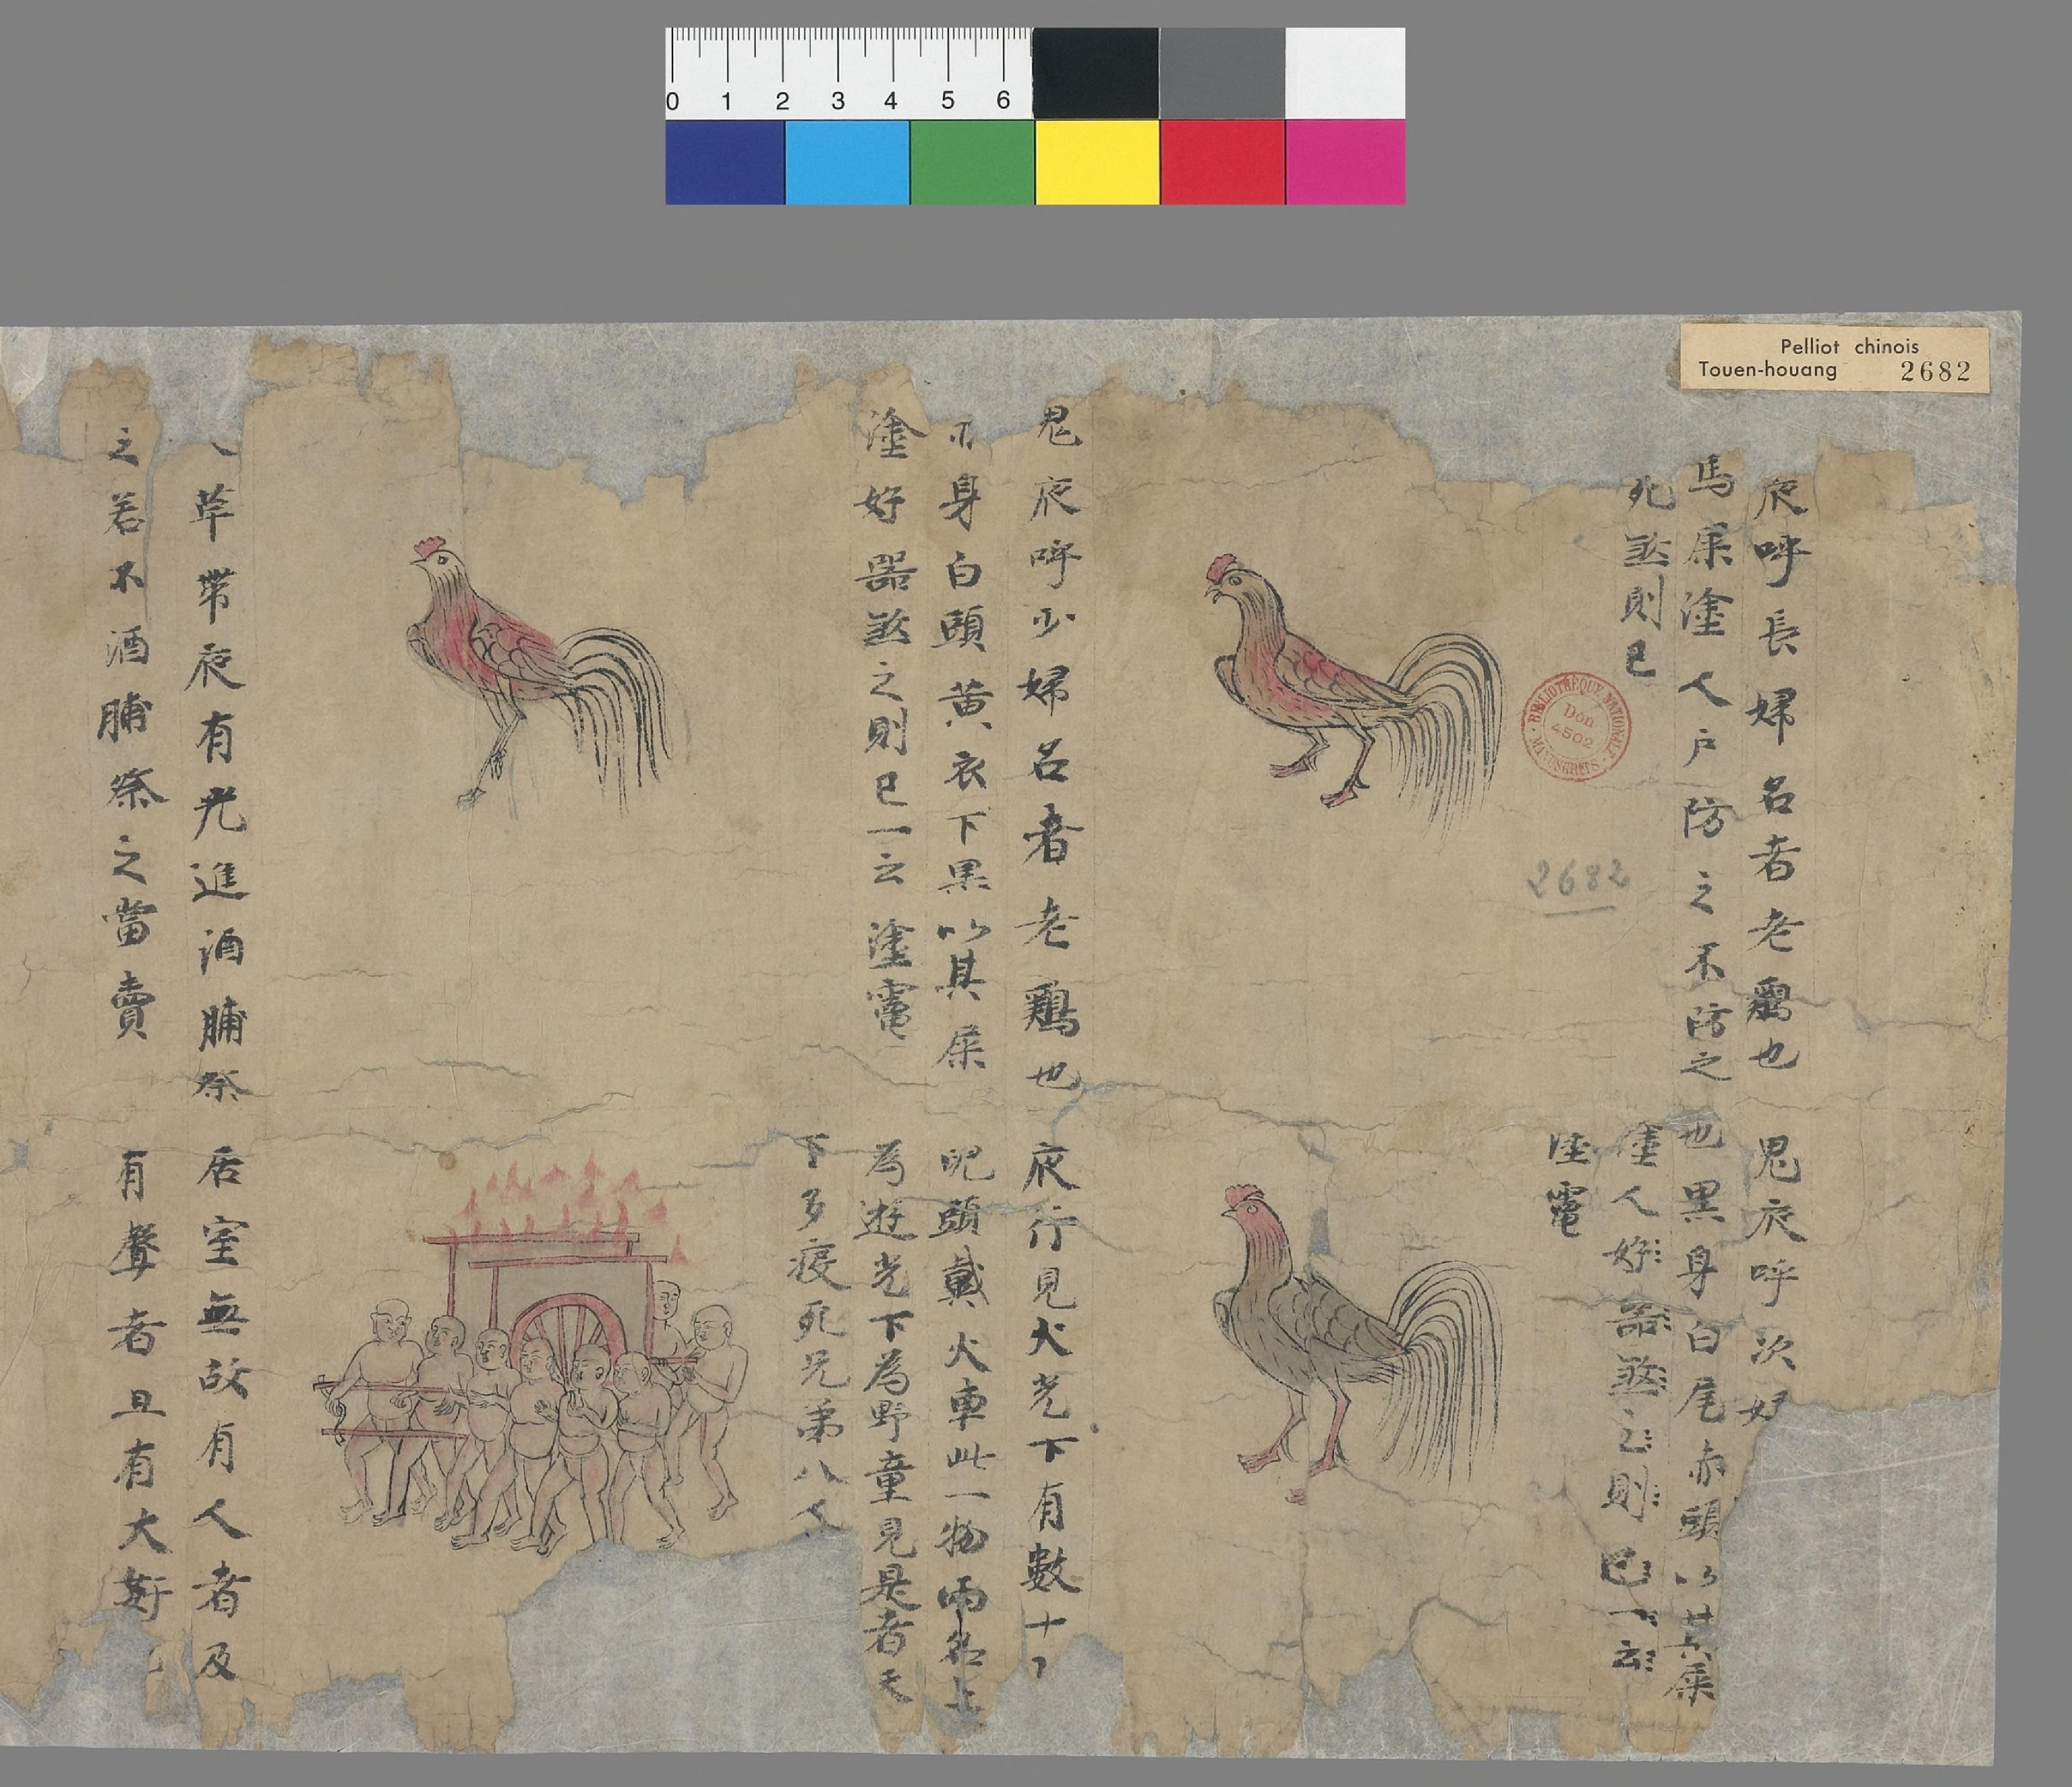 0 1 2 3 4 5 6
Pelliot chinois
Touen-houang 2682
夜呼長婦名者老鷄也
馬屎塗人戶防之不防之
死煞則已
BIBLIOTHÈQUE NATIONALE
MANUSCRITS
Don
4502
2682
鬼夜呼次婦
也黑身白尾赤頭以其屎
塗人好器煞之則已一云
塗竃
鬼夜呼少婦名者老鷄也
身白頭黄衣下黒以其屎
塗好器煞之則已一云塗竃
夜行見火光下有數十
兒頭戴火車此一物兩名上
為遊光下為野童見是者天
下多疫死兄弟八人
草帶夜有光進酒脯祭
之若不酒脯祭之當賣
居室無故有人者及
有聲者且有大